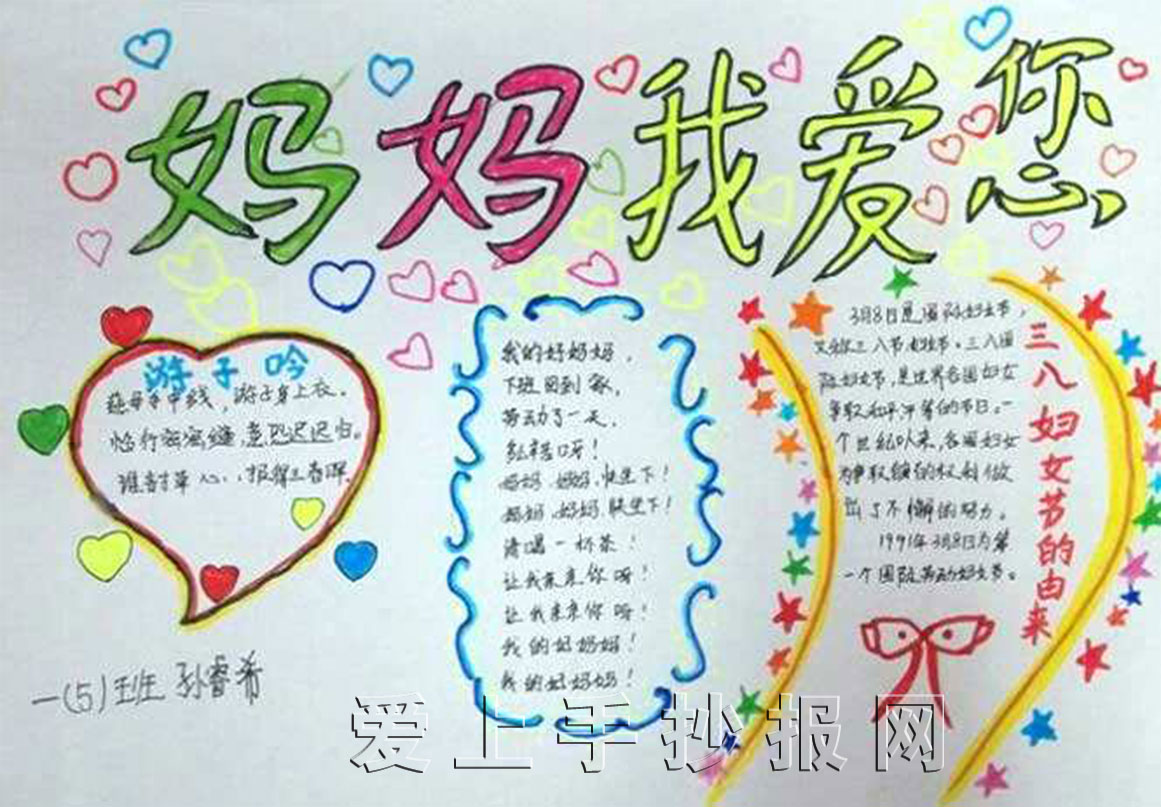 妈妈我爱您
游子吟
慈母手中线，游子身上衣。
临行密密缝，意恐迟迟归。
谁言寸草心，报得三春晖。
一(5)班 孙睿希
我的好妈妈，
下班回到家，
劳动了一天，
多么辛苦呀！
妈妈、妈妈，快坐下！
妈妈、妈妈，快坐下！
请喝一杯茶！
让我亲亲你呀！
让我亲亲你呀！
我的好妈妈！
我的好妈妈！
3月8日是国际妇女节，
又称三八节 妇女节。三八国
际妇女节，是世界各国妇女
争取和平平等的节日。一
个世纪以来，各国妇女
为争取的权利做
出了不懈的努力。
1991年3月8日为第
一个国际劳动妇女节。
三八妇女节的由来
爱上手抄报网